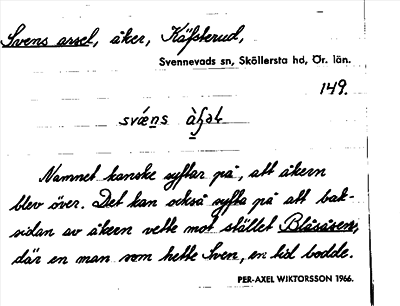 Svens arsel, åker, Käfsterud,
Svennevads sn, Sköllersta hd, Ör. län.
149.
Namnet kanske syftar på, att åkern
blev över. Det kan också syfta på att bak-
sidan av åkern vette mot stället Blåsåsen,
där en man som hette Sven, en tid bodde.
PER-AXEL WIKTORSSON 1966.